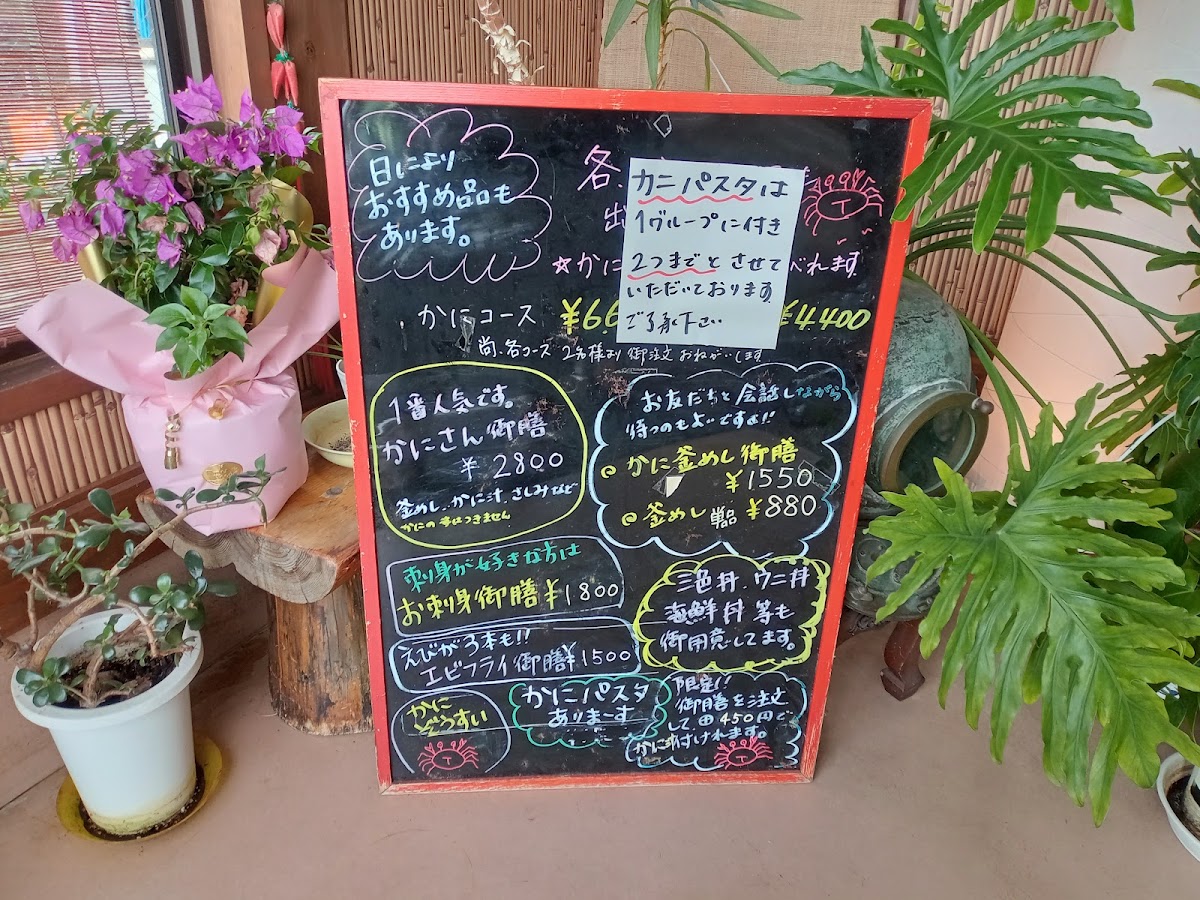 日により
おすすめ品も
あります。
各
出
☆かに
べれます
カニパスタは
1グループに付き
2つまでとさせて
いただいております
ご了承下さい
かにコース ¥66
¥4400
尚、各コース 2名様より 御注文 おねがいします
1番人気です。
かにさん御膳
¥2800
釜めし、かに汁、さしみなど
かにの
つきません
お友だちと会話しながら
待つのもよいですよ!!
かに釜めし御膳
¥1550
釜めし 単品 ¥880
刺身が好きな方は
お刺身御膳¥1800
えびが3本も!!
エビフライ御膳¥1500
三色丼、ウニ丼
海鮮丼 等も
御用意してます。
かに
ぞうすい
かにパスタ
ありまーす
限定!!
御膳を注文
して
450円で
かに
付けれます。